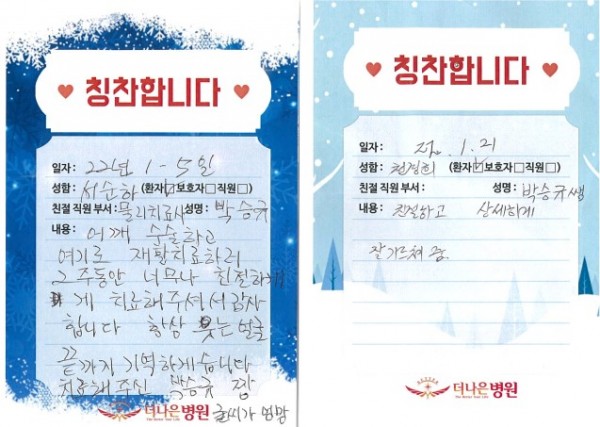 칭찬합니다
일자 : 22년 1-5일
성함 : 서순하 (환자☑보호자□직원□)
친절 직원 부서 : 물리치료사 성명 : 박승규
내용 : 어깨 수술하고
여기로 재활치료하러
2주동안 너무나 친절하게
게 치료해주셔서 감사
합니다 항상 웃는 얼굴
끝까지 기억하게습니다
치료해주신 박승규 짱
더나은병원
글씨가 엉망
칭찬합니다
일자 : 1. 21
성함 : (환자☑보호자□직원□)
친절 직원 부서 : 성명 : 박승규쌤
내용 : 친절하고 상세하게
잘 가르쳐 줌.
더나은병원